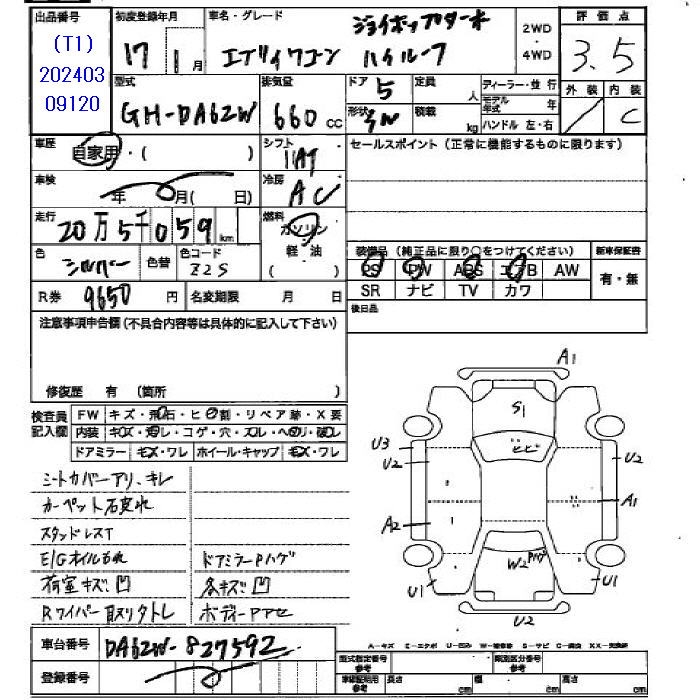 出品番号
(T1)
202403
09120
初度登録年月
17 1月
車名・グレード
ジョイポップターボ
エブリイワゴン ハイルーフ
2WD
4WD
評価点
3.5
型式
GH-DA62W
排気量
660 cc
ドア 5
形状
定員 人
積載 kg
ディーラー・並行
モデル年式 年
ハンドル 左・右
外装 内装
C
車歴
自家用・( )
シフト
冷房
AC
セールスポイント(正常に機能するものに限ります)
車検
年 月( 日)
走行
20万5千059 km
燃料
ガソリン
軽・油
( )
色
シルバー
色替
色コード
Z2S
装備品(純正品に限り○をつけてください)
新車保証書
PS PW ABS エアB AW
SR ナビ TV カワ
有・無
R券 9650円
名変期限 月 日
後日品
注意事項申告欄(不具合内容等は具体的に記入して下さい)
修復歴 有 (箇所 )
検査員
記入欄
FW キズ・飛石・ヒビ割・リペア跡・X要
内装 キズ・汚レ・コゲ・穴・スレ・ヘタリ・破レ
ドアミラー キズ・ワレ ホイール・キャップ キズ・ワレ
シートカバーアリ、キレ
カーペット石変水
スタッドレスT
E/Gオイルもれ ドアミラーPハゲ
荷室キズ凹 各キズ凹
Rワイパー取リタトレ ボディーPアセ
A1
S1
ヒビ
U3
U2
U2
A1
A2
W2
Pハゲ
U1
U1
U2
車台番号 DA62W-827592
登録番号
A-キズ E-エクボ U-凹み W-補修跡 S-サビ C-腐蝕 XX-交換済
型式指定番号 参考
類別区分番号 参考
車庫証明用 参考
長さ cm
幅 cm
高さ cm